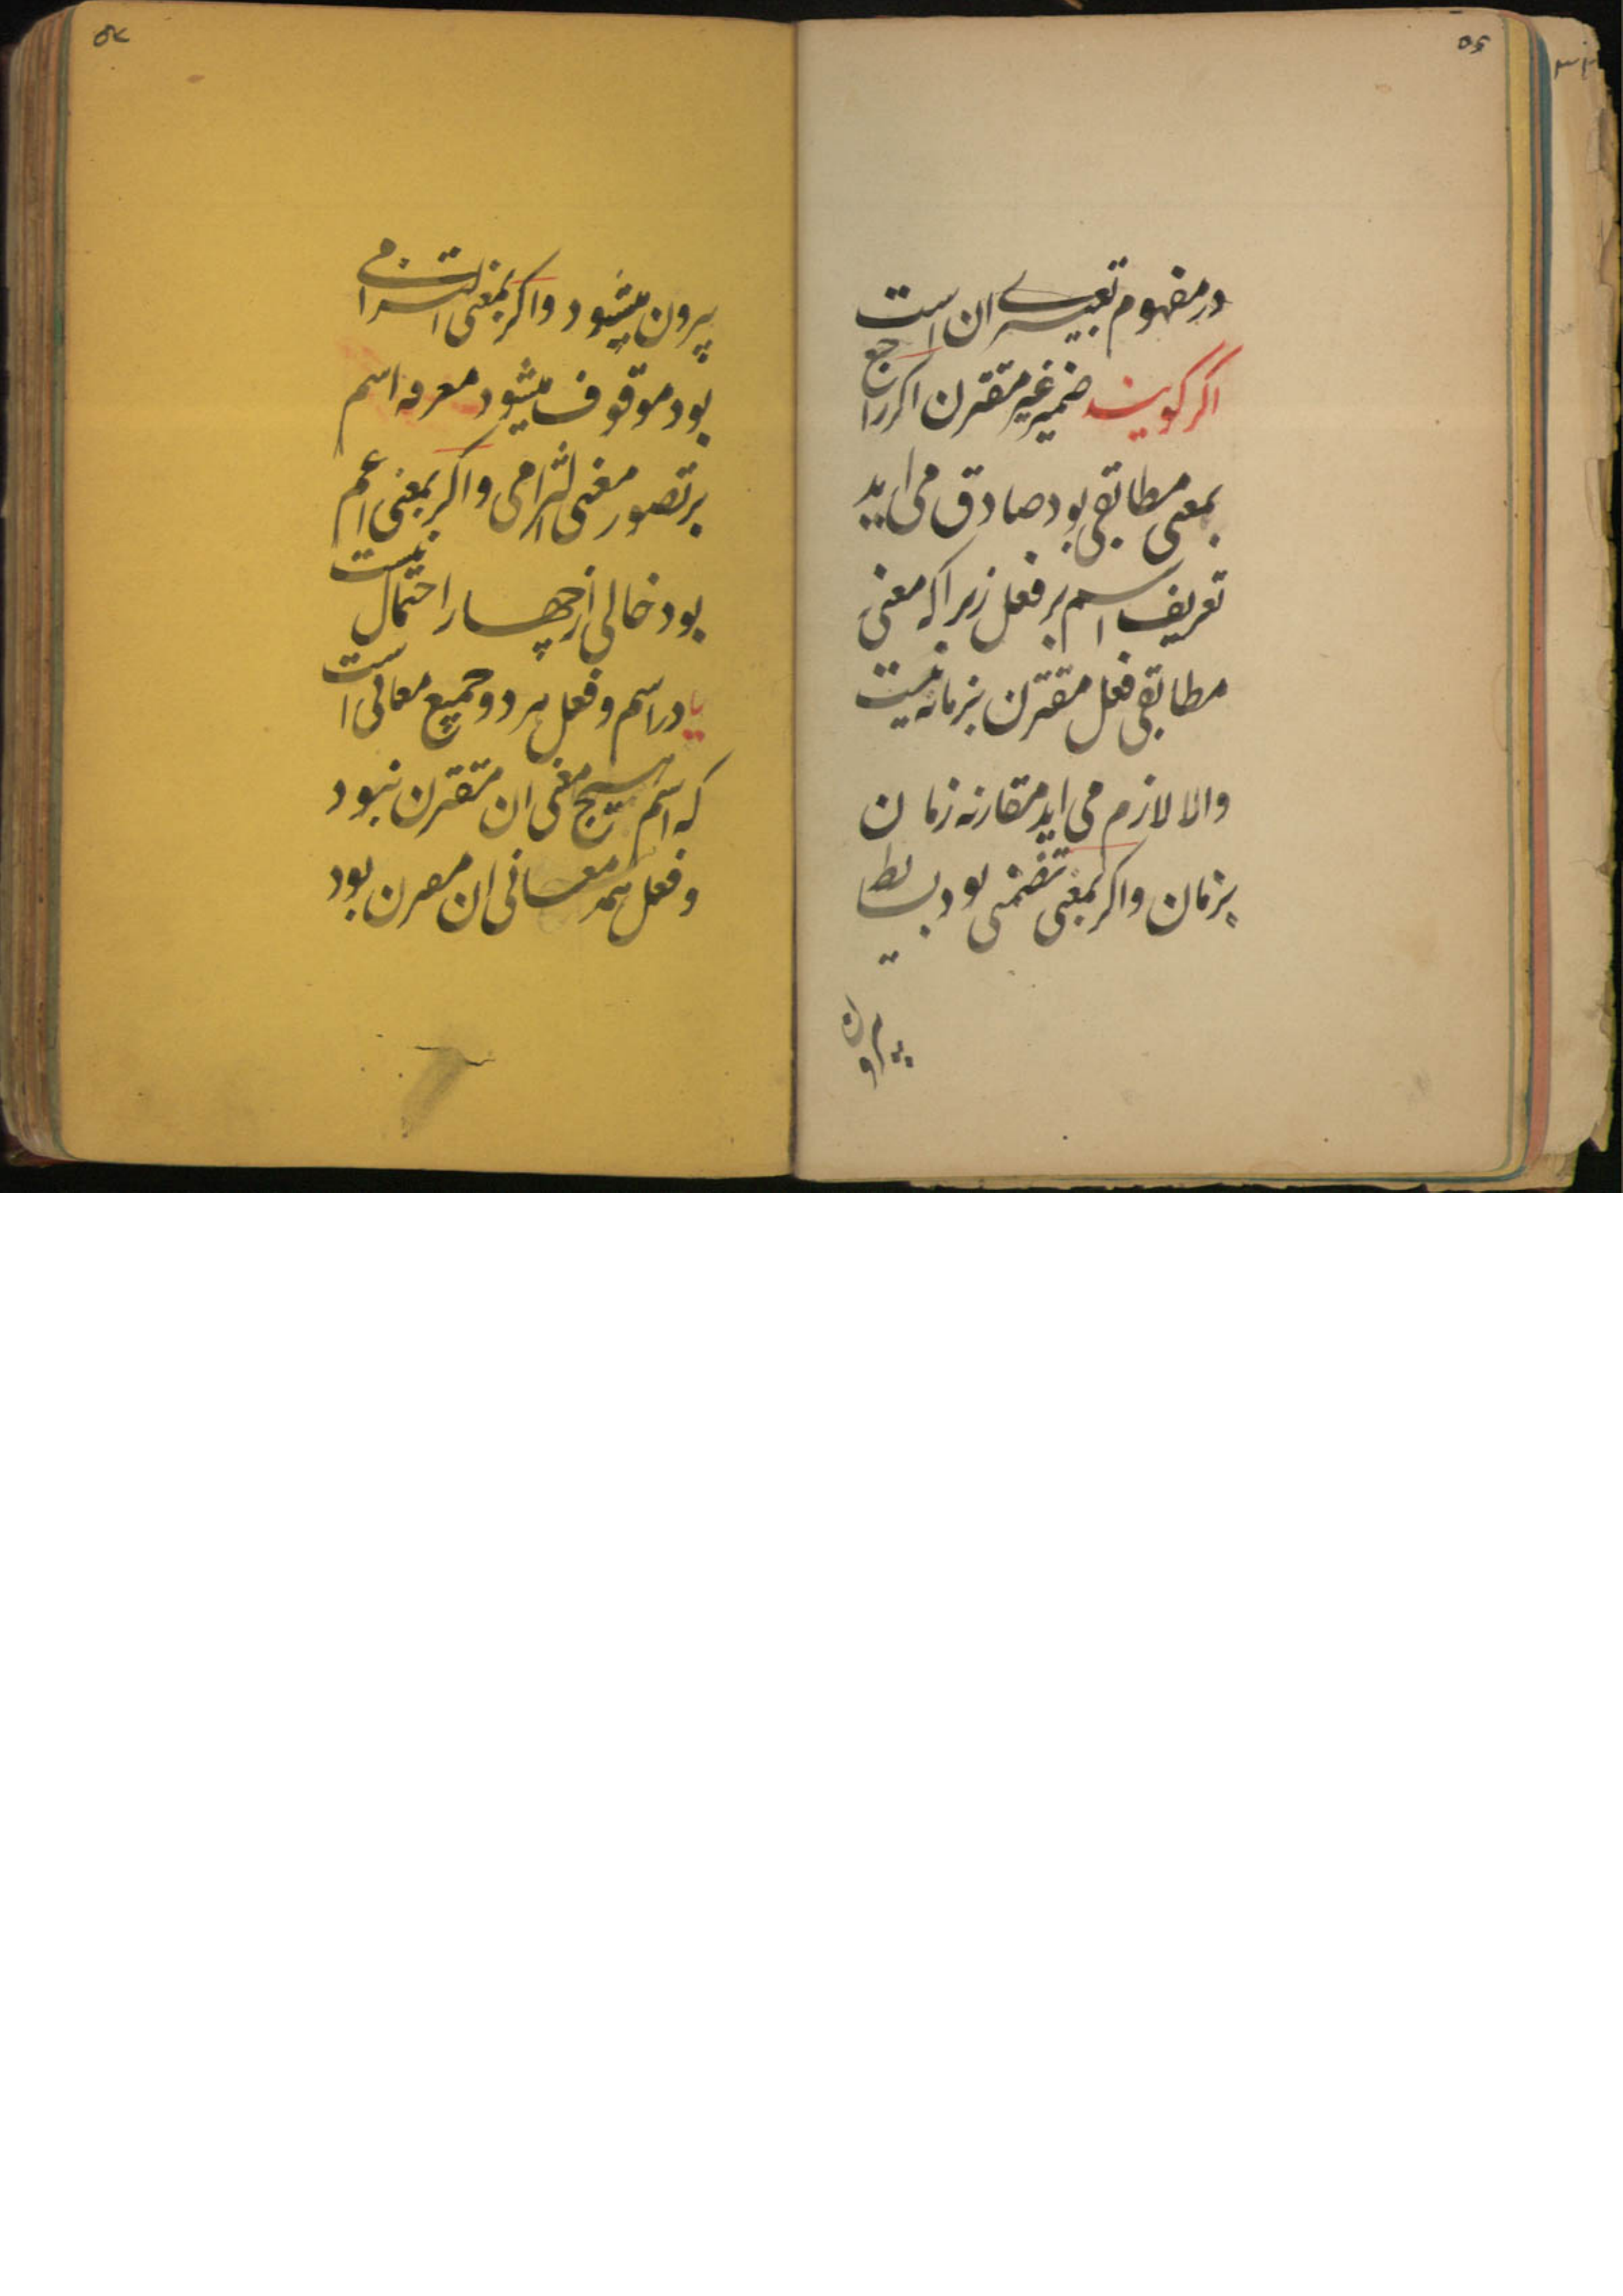 ۵۶
در مفهوم تعبیری ان است
اگر گویند ضمیر غیر مقترن اکر راجع
بمعنی مطابقی بود صادق می اید
تعریف اسم بر فعل زیرا که معنی
مطابقی فعل مقترن بزمانه نیست
والا لازم می اید مقارنه زمان
بزمان واکر بمعنی تضمنی بود بسایط
بیرون
۵۷
بیرون میشود واکر بمعنی التزامی
بود موقوف میشود معرفه اسم
بر تصور معنی التزامی واکر بمعنی اعم
بود خالی از چهار احتمال نیست
یا در اسم وفعل هر دو جمیع معانی است
که اسم هیچ معنی ان مقترن نبود
وفعل همه معانی ان مقرن بود